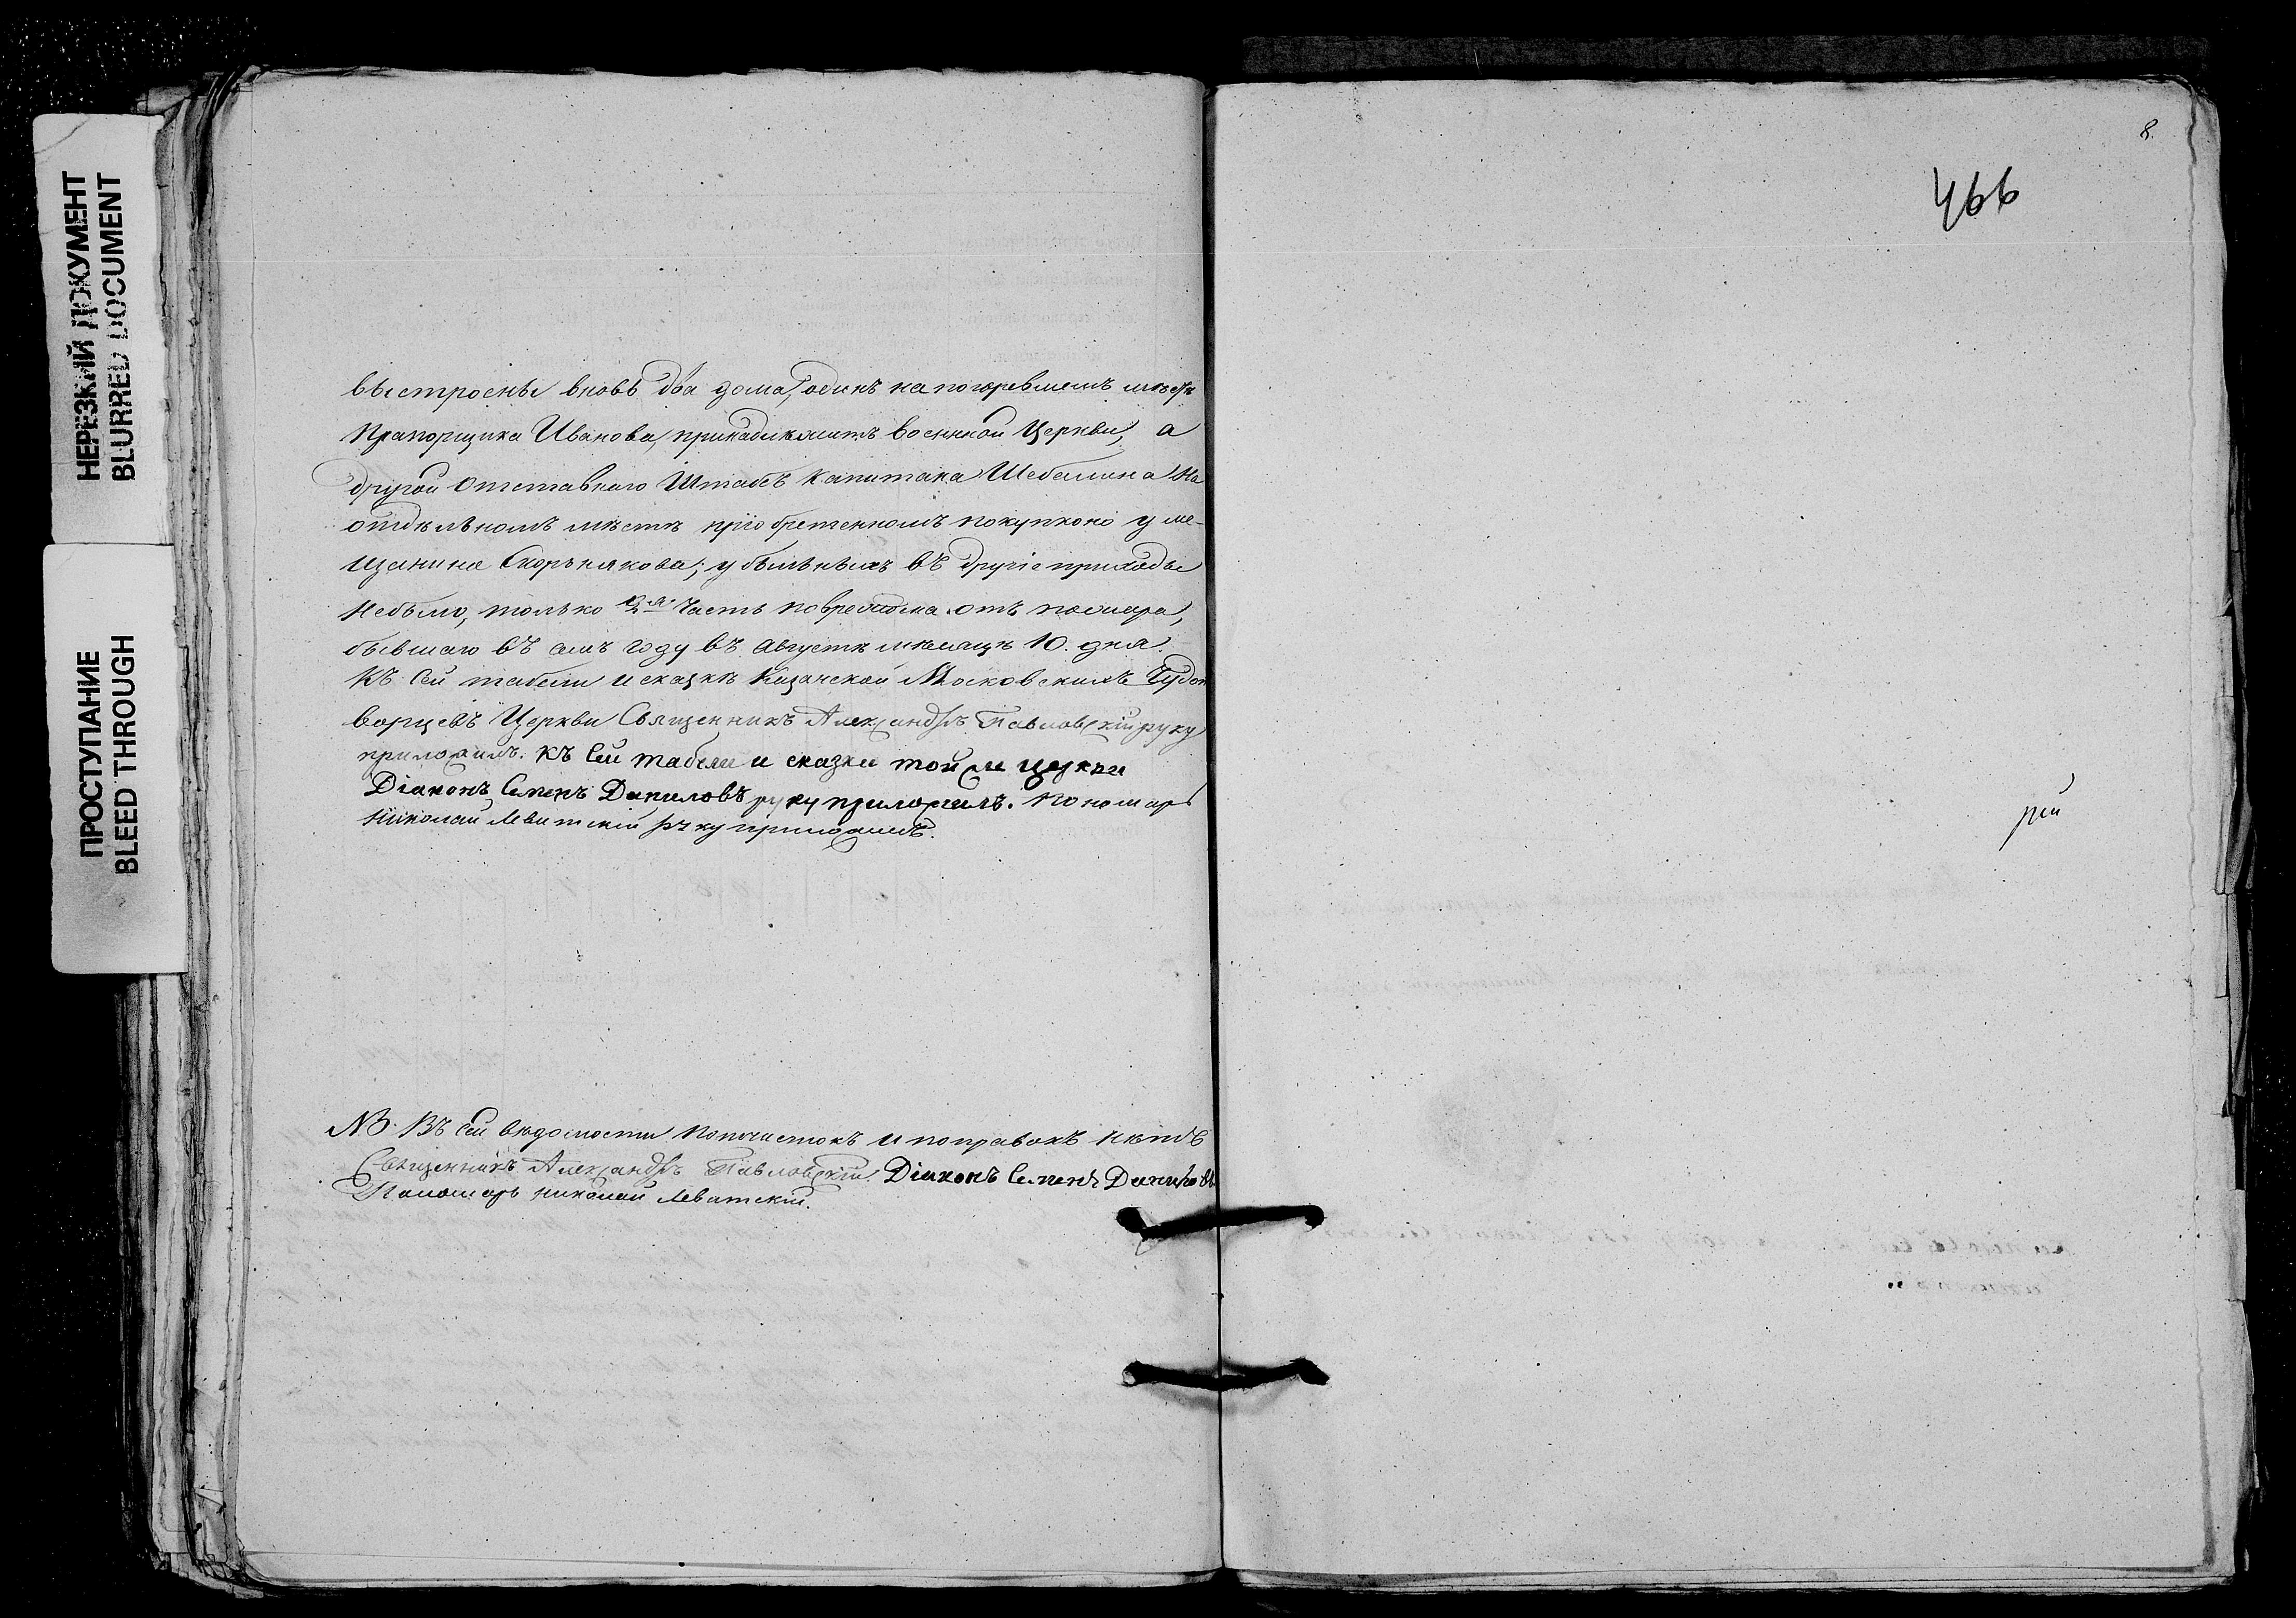 НЕРЕЗКИЙ ДОКУМЕНТ
BLURRED DOCUMENT
ПРОСТУПАНИЕ
BLEED THROUGH
выстроены вновь два дома, один на погоревшемъ мѣстѣ
Прапорщика Иванова, принадлежитъ военной Церкви, а
другой отставнаго Штабсъ Капитана Шебашина на
отдѣльномъ мѣстѣ пріобретенномъ покупкою у ме-
щанина Скорнякова; убылыхъ въ другіе приходы
небыло, только 2я. часть повреждена отъ пожара,
бывшаго въ семъ году въ Августѣ мѣсяцѣ 10. дня.
Къ сей табели и сказкѣ Казанской Московскихъ Чудот
ворцевъ Церкви Священникъ Александръ Павловскій руку
приложилъ. Къ сей табели и сказки той же церкви
Діаконъ Семенъ Даниловъ руку приложилъ. Пономарь
Николай Левитскій руку приложилъ.
NB. Въ сей вѣдомости почистокъ и поправокъ нѣтъ
Священникъ Александръ Павловскій. Діаконъ Семенъ Даниловъ
Пономарь Николай Левитский.
8.
466
рій